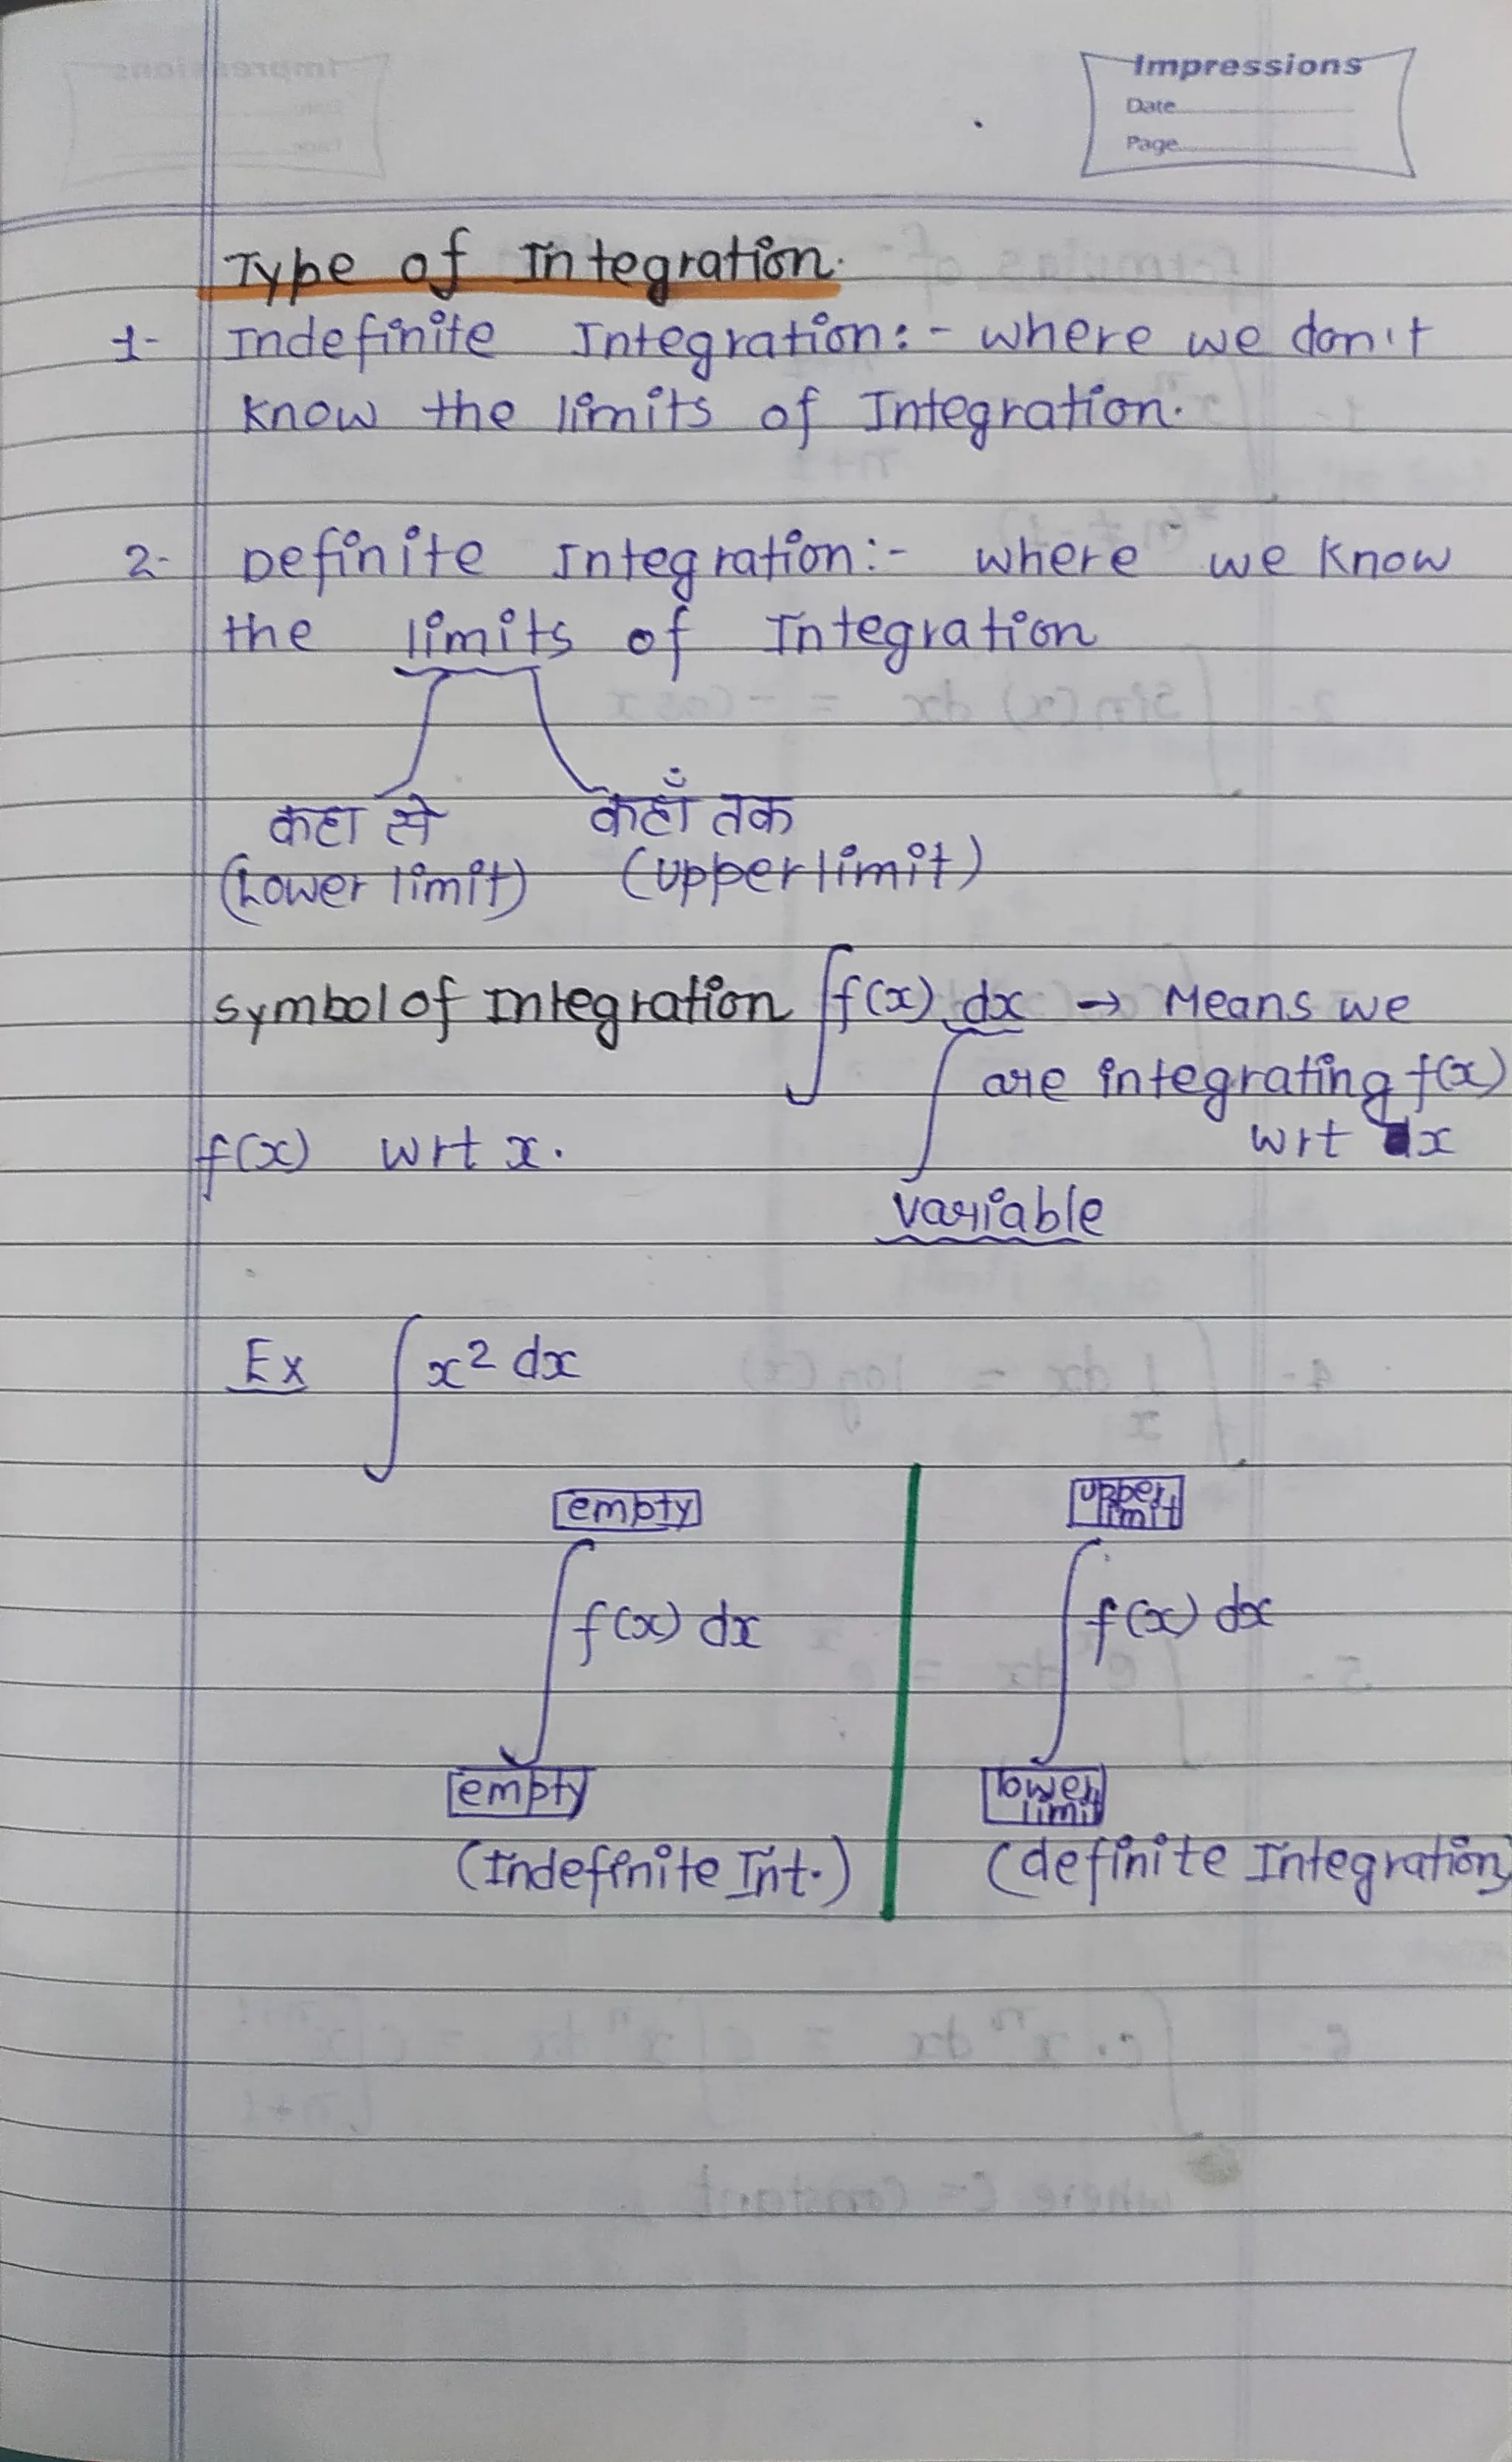 Impressions
Date
Page
Type of Integration.
1- Indefinite Integration:- where we don't
know the limits of Integration.
2- Definite Integration:- where we know
the limits of Integration
कहा से कहाँ तक
(Lower limit) (upper limit)
symbol of Integration ∫f(x) dx → Means we
are integrating f(x)
f(x) wrt x. wrt dx
variable
Ex ∫x² dx
empty upper limit
∫f(x) dx ∫f(x) dx
empty lower limit
(Indefinite Int.) (definite Integration)